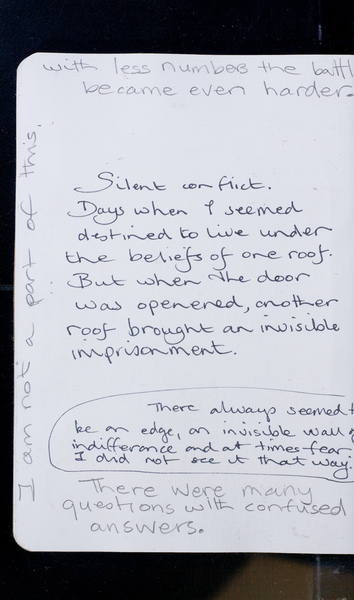 with less numbers the battl
became even harder.
I am not a part of this.
Silent conflict.
Days when I seemed
destined to live under
the beliefs of one roof.
But when the door
was openered, another
roof brought an invisible
imprisonment.
There always seemed t
be an edge, an invisible wall
indifferance and at times fear.
I did not see it that way.
There were many
questions with confused
answers.